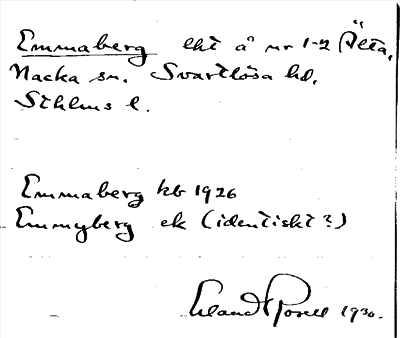 Emmaberg lht å nr 1-2 Älta,
Nacka sn. Svartlösa hd.
Sthlms l.
Emmaberg kb 1926
Emmyberg ek (identiskt?)
Erland Rosell 1930.